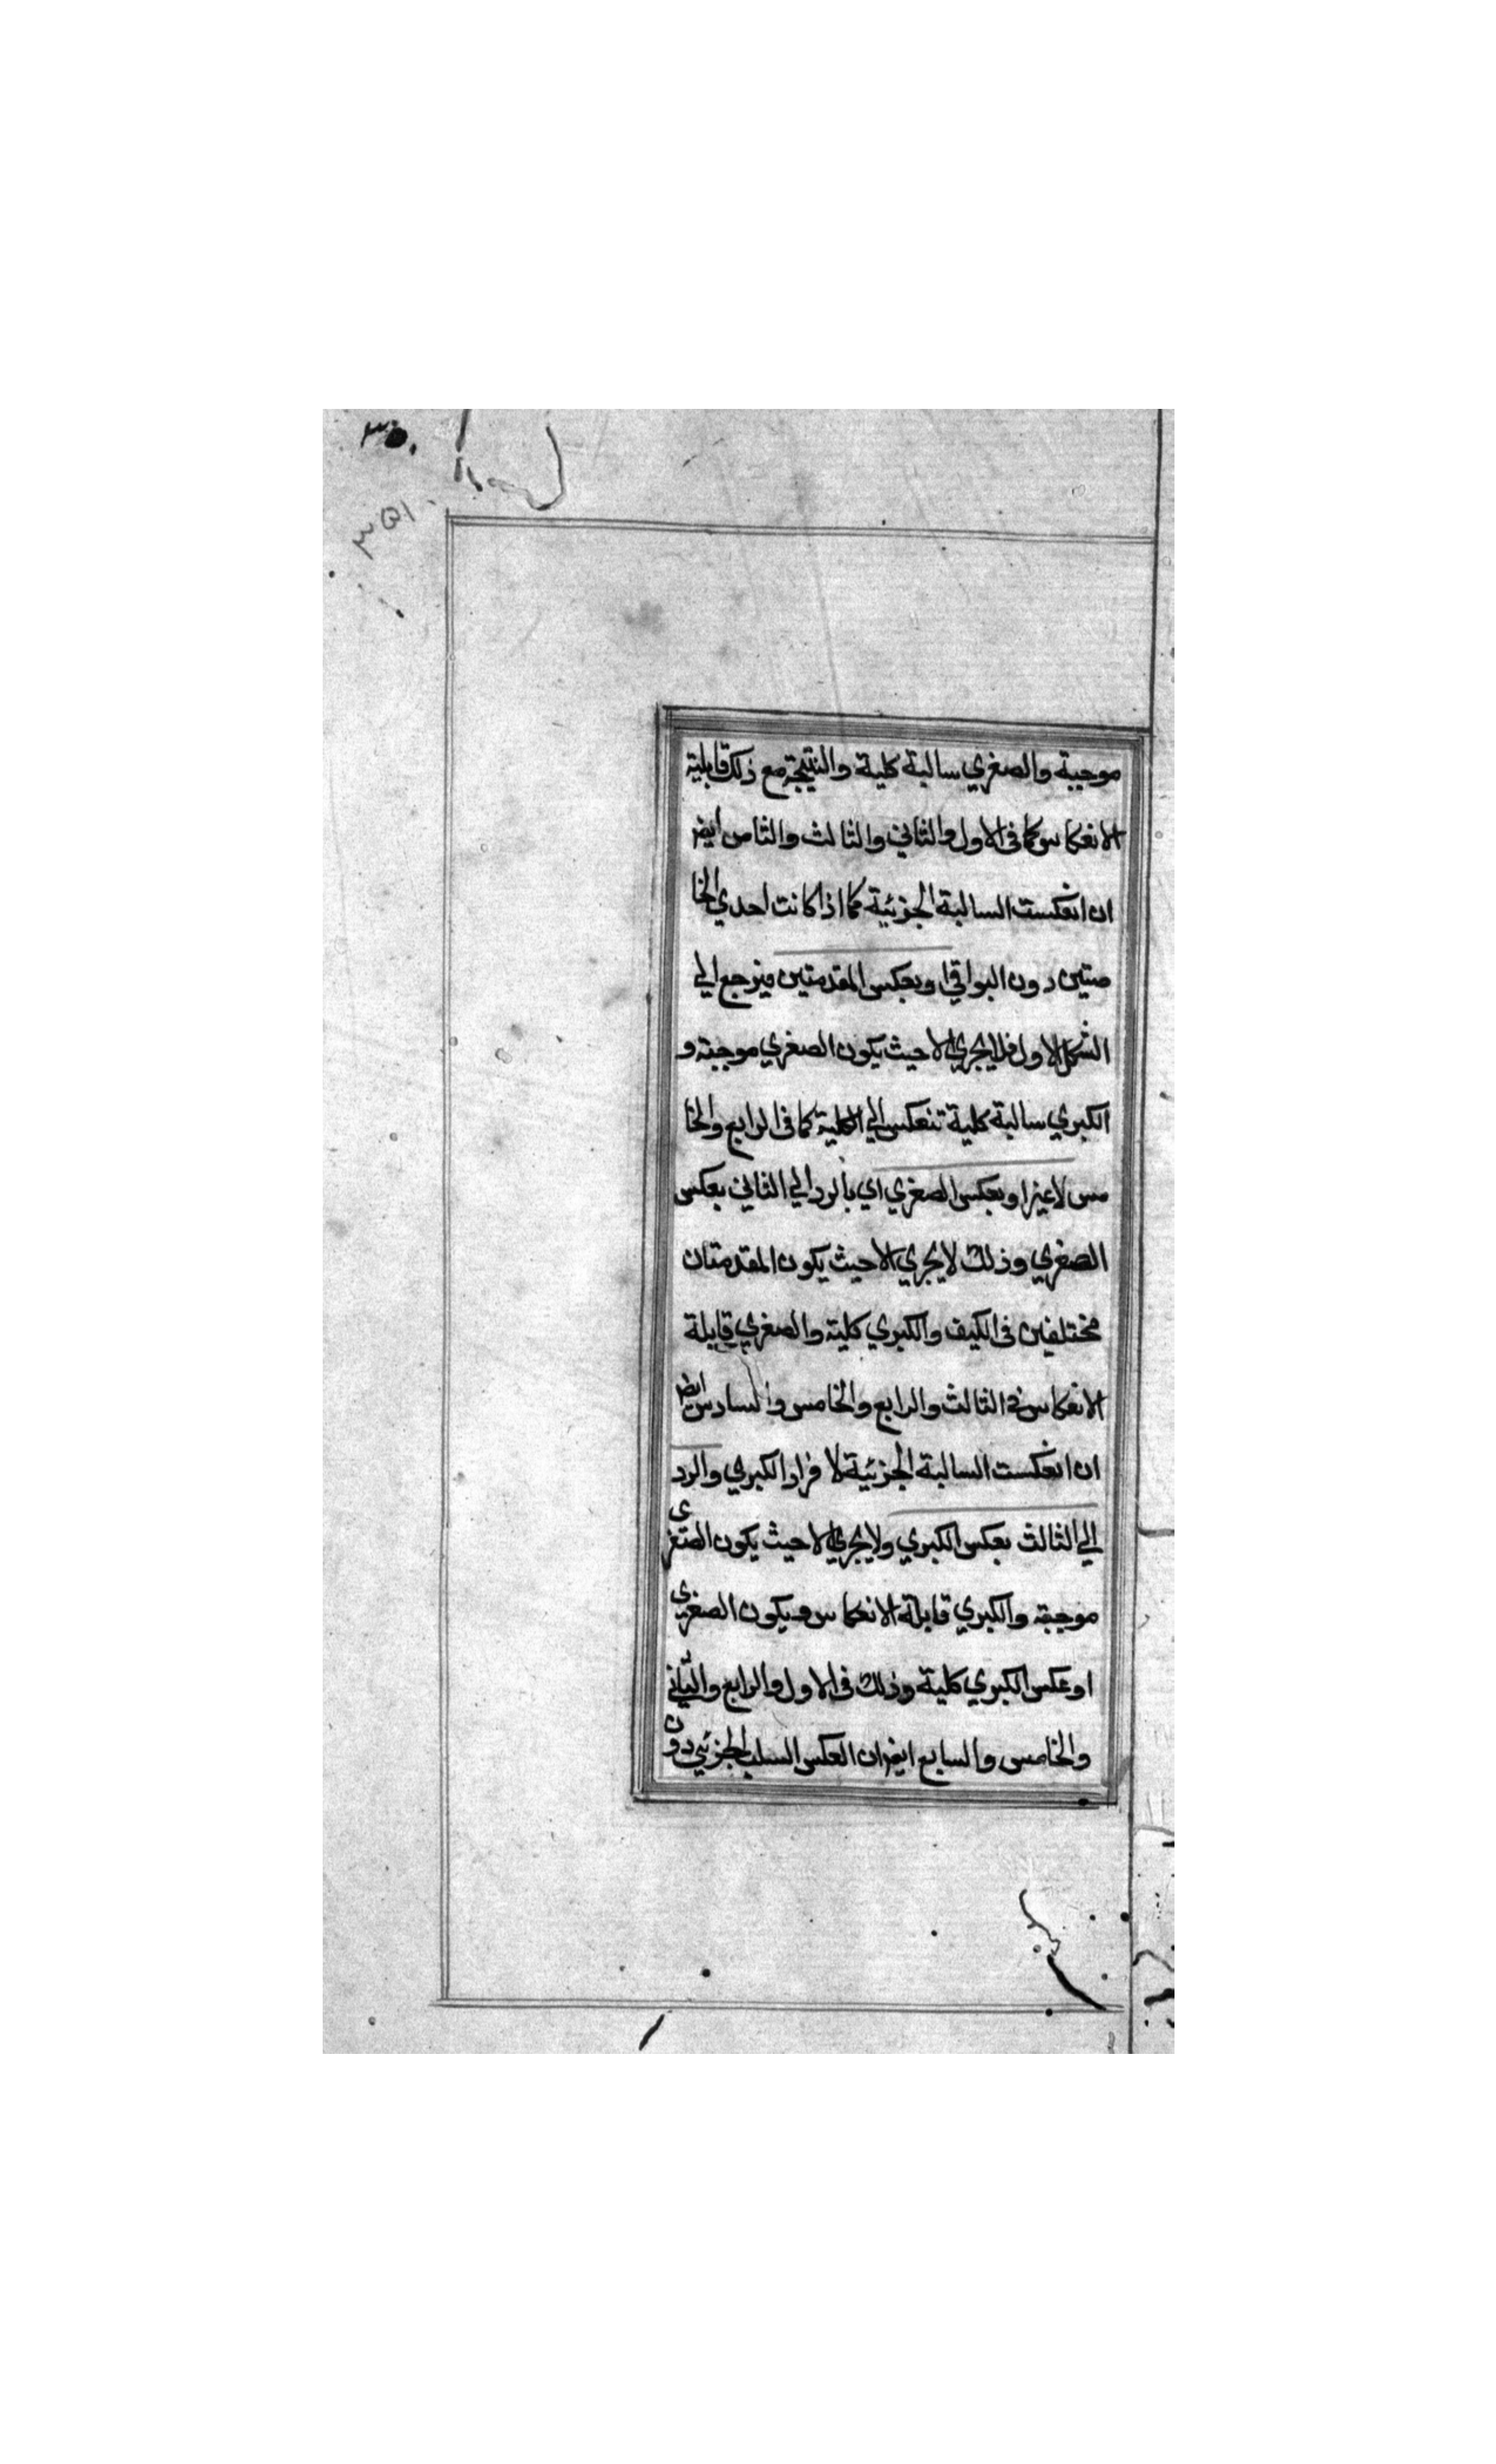 ٣٥٠
٣٥١
موجبة والصغري سالبة كلية والنتيجة مع ذلك قابلية
الانعكاس كما في الاول والثاني والثالث والثامن ايضا
ان انعكست السالبة الجزئية كما اذا كانت احدي الخا
صتين دون البواقي او بعكس المقدمتين فيرجع الي
الشكل الاول فلا يجري الا حيث يكون الصغري موجبة و
الكبري سالبة كلية تنعكس الي الكلية كما في الرابع والخا
مس لا غير او بعكس الصغري اي بالرد الي الثاني بعكس
الصغري وذلك لا يجري الا حيث يكون المقدمتان
مختلفين في الكيف والكبري كلية والصغري قابلة
الانعكاس في الثالث والرابع والخامس والسادس ايضا
ان انعكست السالبة الجزئية لا فراد الكبري والرد
الي الثالث بعكس الكبري ولا يجري الا حيث يكون الصغري
موجبة والكبري قابلة الانعكاس ويكون الصغري
او عكس الكبري كلية وذلك في الاول والرابع والثاني
والخامس والسابع ايضا ان العكس السلب الجزئي دون